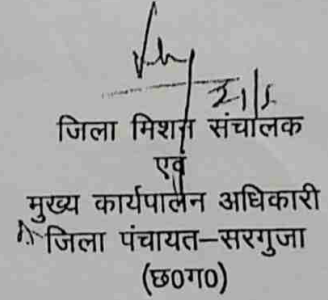 जिला मिशन संचालक
एवं
मुख्य कार्यपालन अधिकारी
जिला पंचायत–सरगुजा
(छ0ग0)